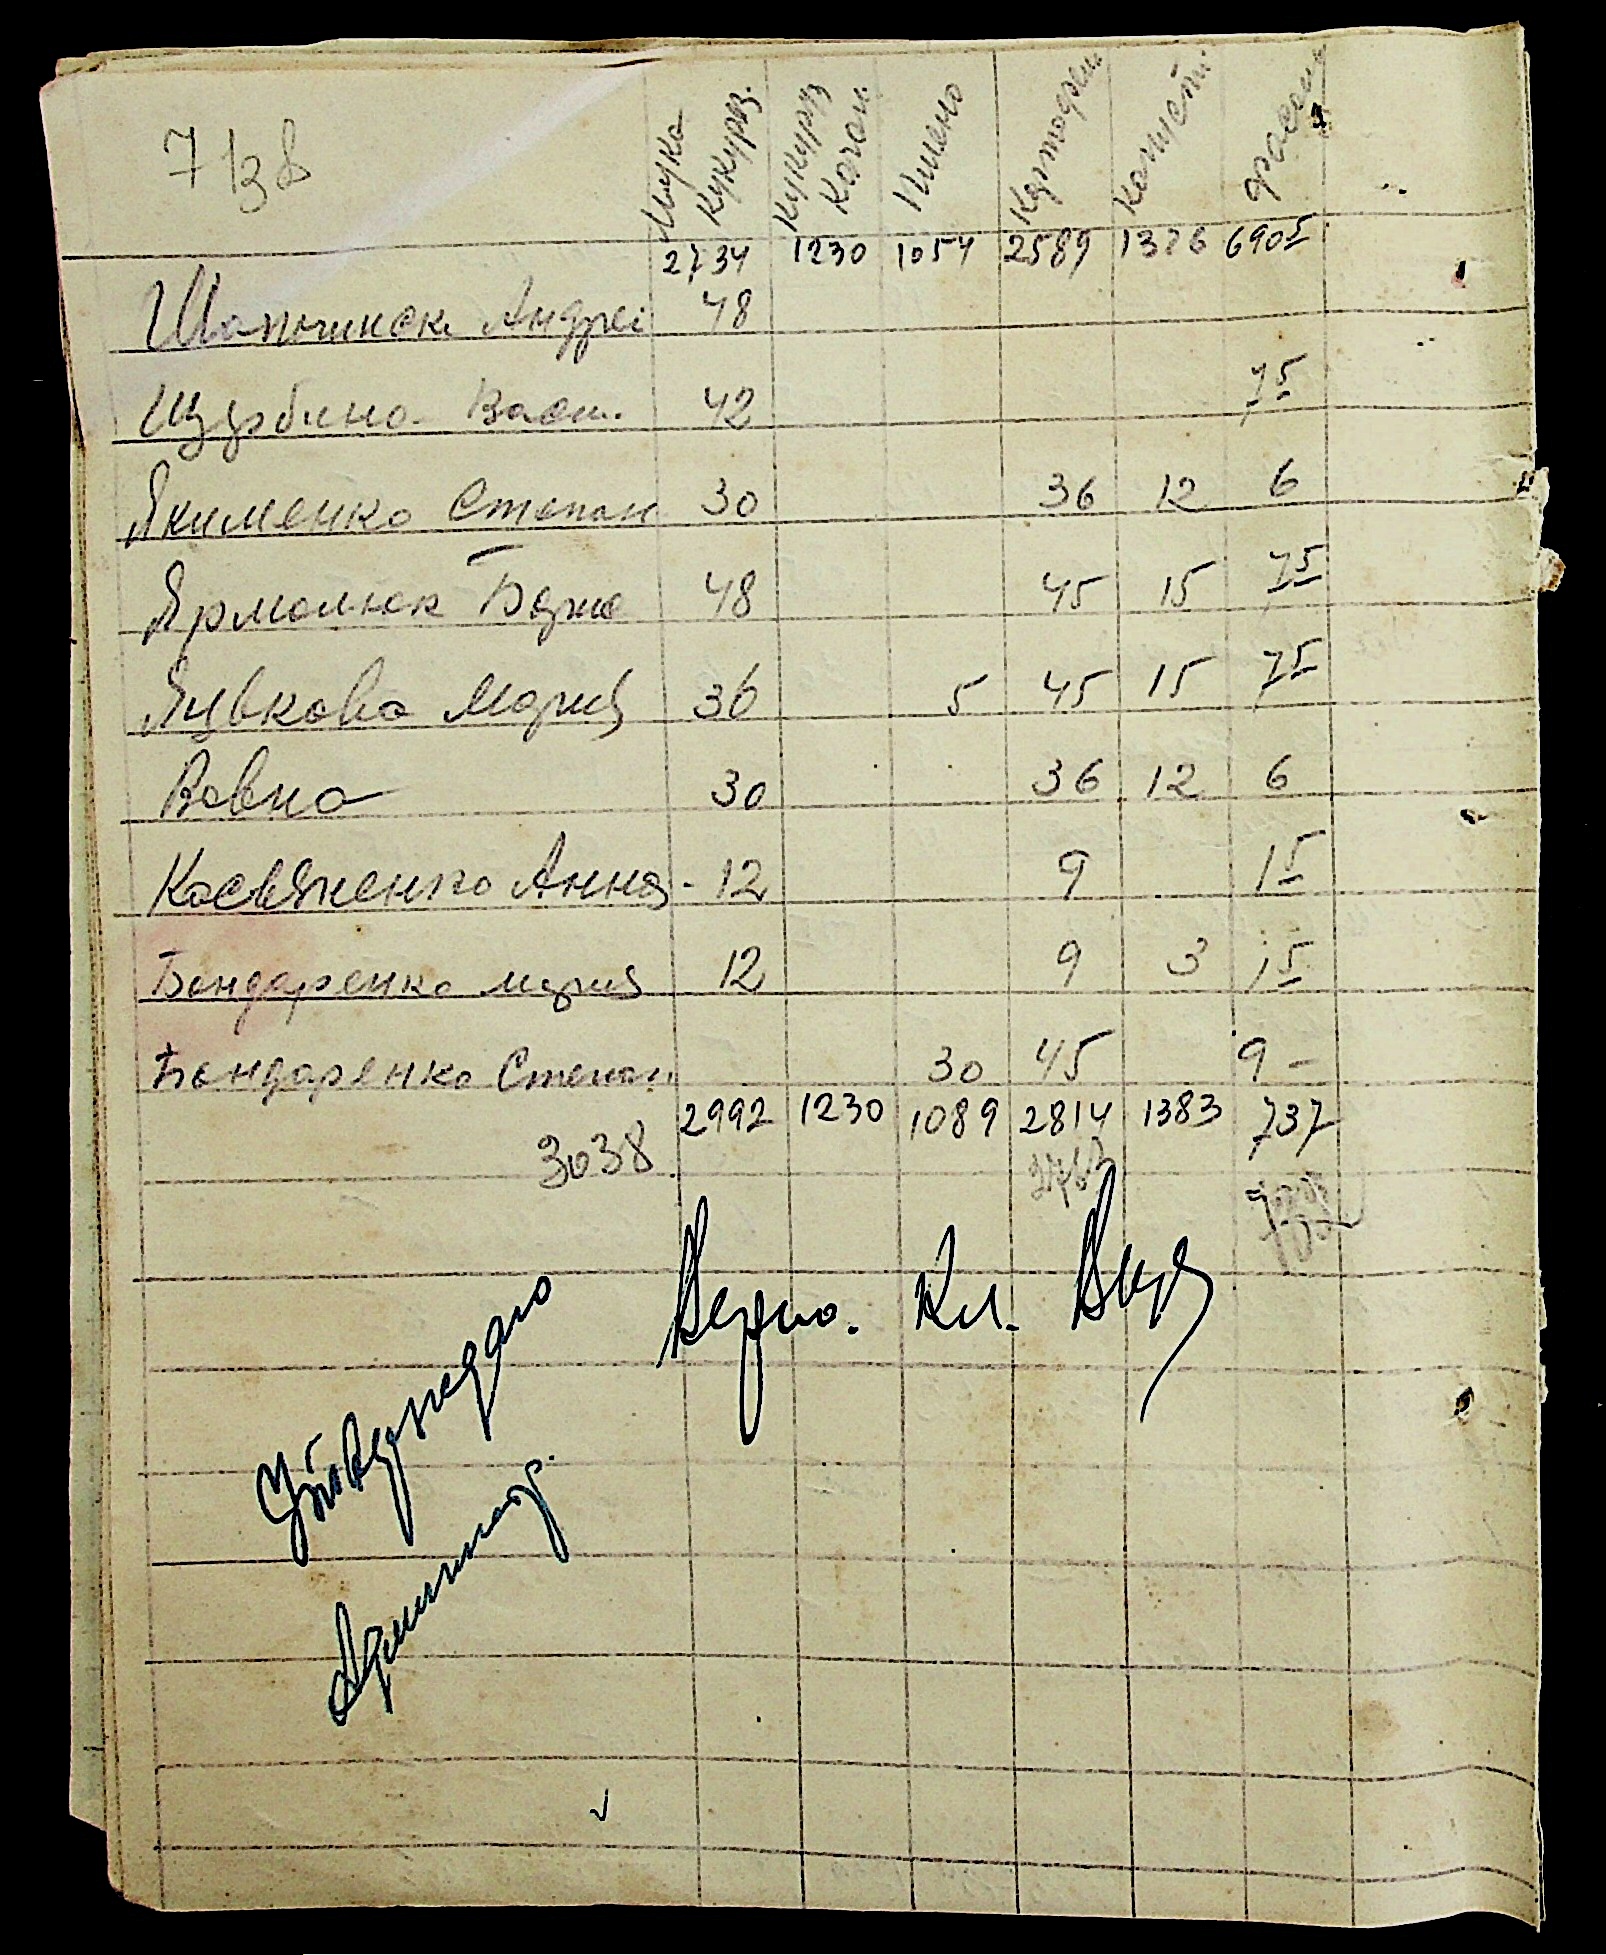 7
Мука кукурз. Кукурз качан. Пшено Картофель капуста фасоль
2734 1230 1054 2589 1326 6905
Шапочинск Андреі 48
Щурбина Васи. 42 75
Якименко Степан 30 36 12 6
Ярмолюк Борис 48 45 15 75
Яцькова Мария 36 5 45 15 75
Вовна 30 36 12 6
Касьяненко Анна - 12 9 15
Бондаренко мария 12 9 3 15
Бондаренко Степан 30 45 9 -
2992 1230 1089 2814 1383 737
3038
Верно.
Утверждаю